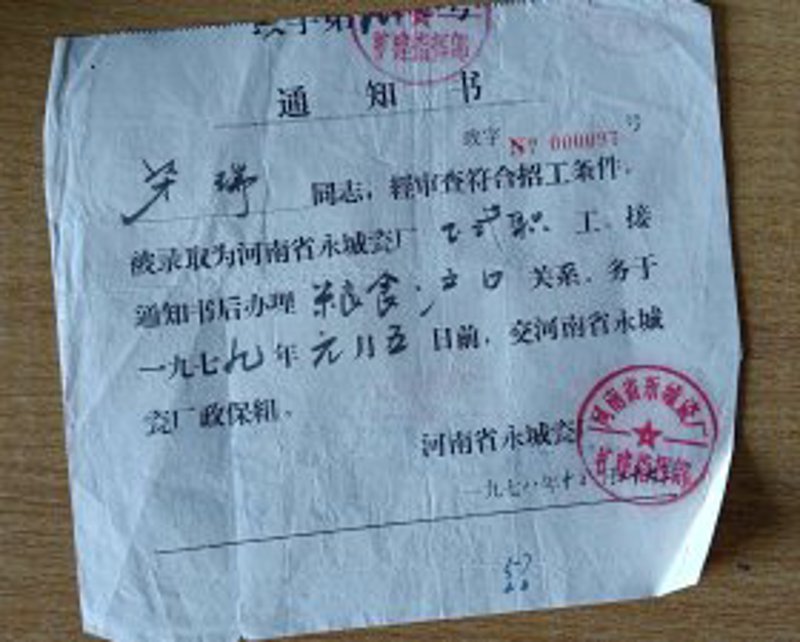 扩建指挥部
通知书
改字 № 000097号
同志，经审查符合招工条件，
被录取为河南省永城瓷厂 正式职 工、接
通知书后办理 粮食户口 关系、务于
一九七九年元月五日前，交河南省永城
瓷厂政保组。
河南省永城瓷厂
河南省永城瓷厂
扩建指挥部
一九七八年十
57